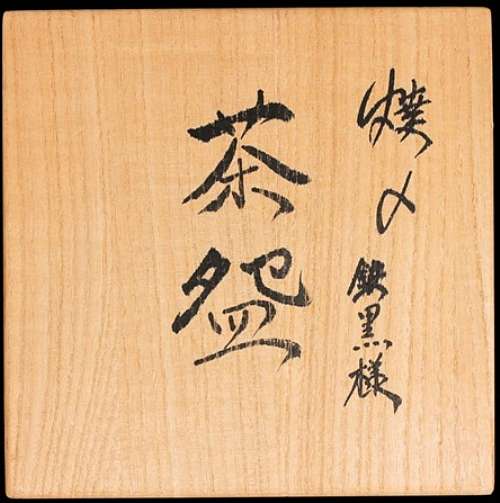 焼〆鉄黒様
茶盌